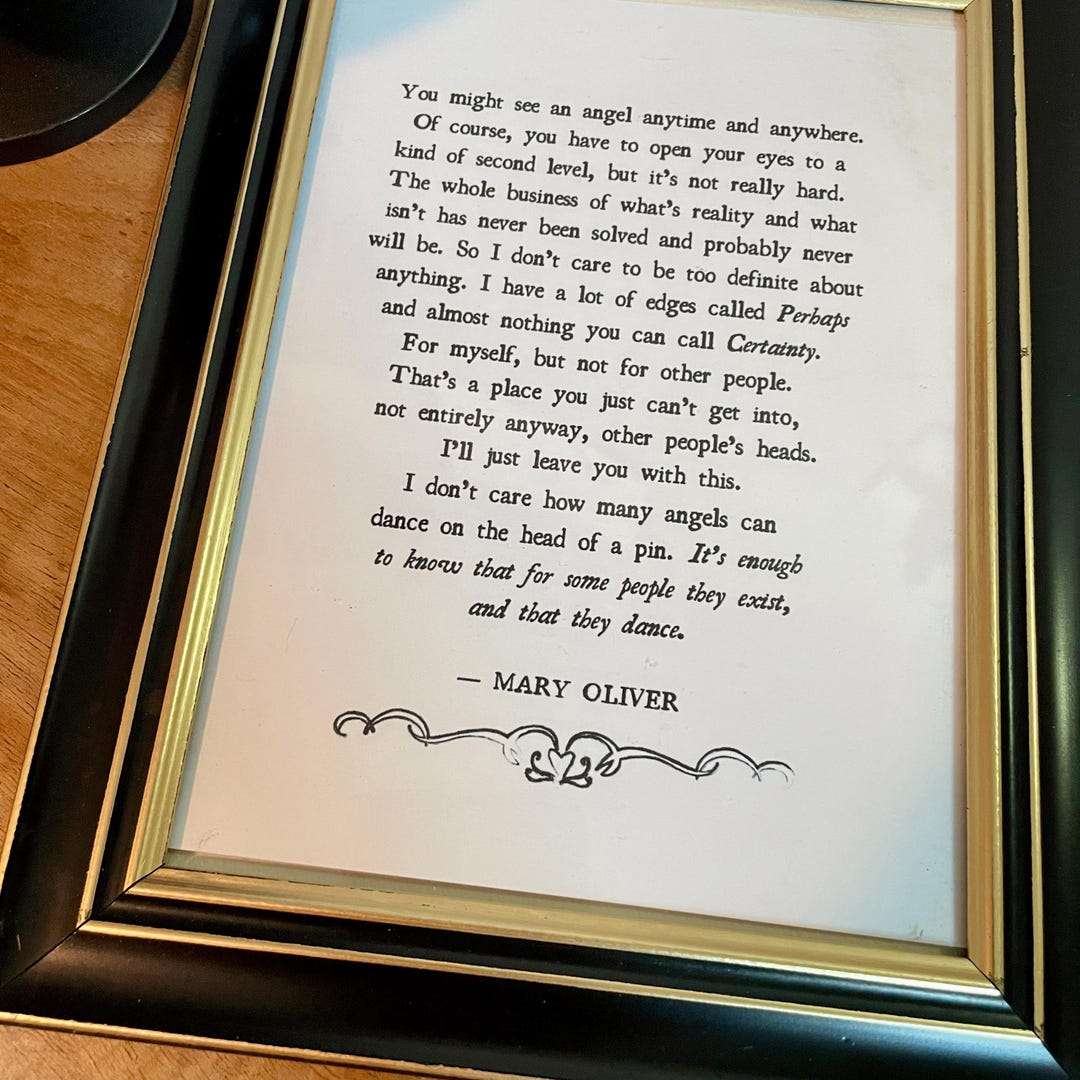 You might see an angel anytime and anywhere.
Of course, you have to open your eyes to a
kind of second level, but it's not really hard.
The whole business of what's reality and what
isn't has never been solved and probably never
will be. So I don't care to be too definite about
anything. I have a lot of edges called Perhaps
and almost nothing you can call Certainty.
For myself, but not for other people.
That's a place you just can't get into,
not entirely anyway, other people's heads.
I'll just leave you with this.
I don't care how many angels can
dance on the head of a pin. It's enough
to know that for some people they exist,
and that they dance.
— MARY OLIVER